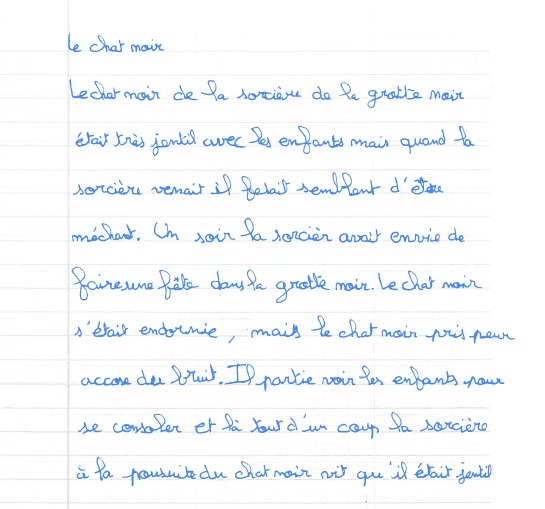 le chat noir
Le chat noir de la sorcière de la grotte noir
était très jentil avec les enfants mais quand la
sorcière venait il fesait semblent d'être
méchant. Un soir la sorcièr avait envie de
faire une fâte dans la grotte noir. Le chat noir
s'était endormie, mais le chat noir pris peur
accose du bruit. Il partie voir les enfants pour
se consoler et là tout d'un coup la sorcière
à la poursuite du chat noir vit qu'il était jentil